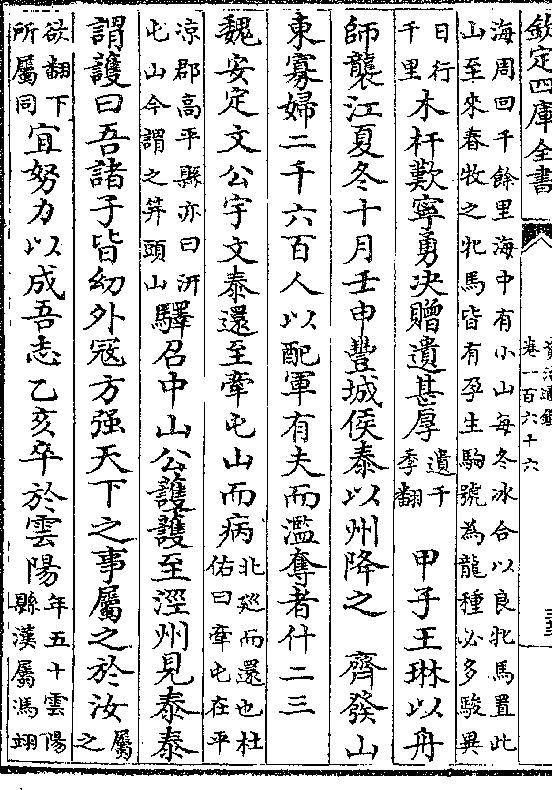 欽定四庫全書
資治通鑑
卷一百六十六
海周回千餘里海中有小山每冬冰合以良牝馬置此
山至來春牧之牝馬皆有孕生駒號為龍種必多駿異
日行千里木杆歎寧勇決贈遺甚厚遺千季翻 甲子王琳以舟
師襲江夏冬十月壬申豐城侯泰以州降之 齊發山
東寡婦二千六百人以配軍有夫而濫奪者什二三
魏安定文公宇文泰還至牽屯山而病北廵而還也杜佑曰牽屯在平
涼郡高平縣亦曰汧屯山今謂之笄頭山驛召中山公護護至涇州見泰泰
謂護曰吾諸子皆幼外寇方强天下之事屬之於汝屬之
欲翻下所屬同宜努力以成吾志乙亥卒於雲陽年五十雲陽縣漢屬馮翊